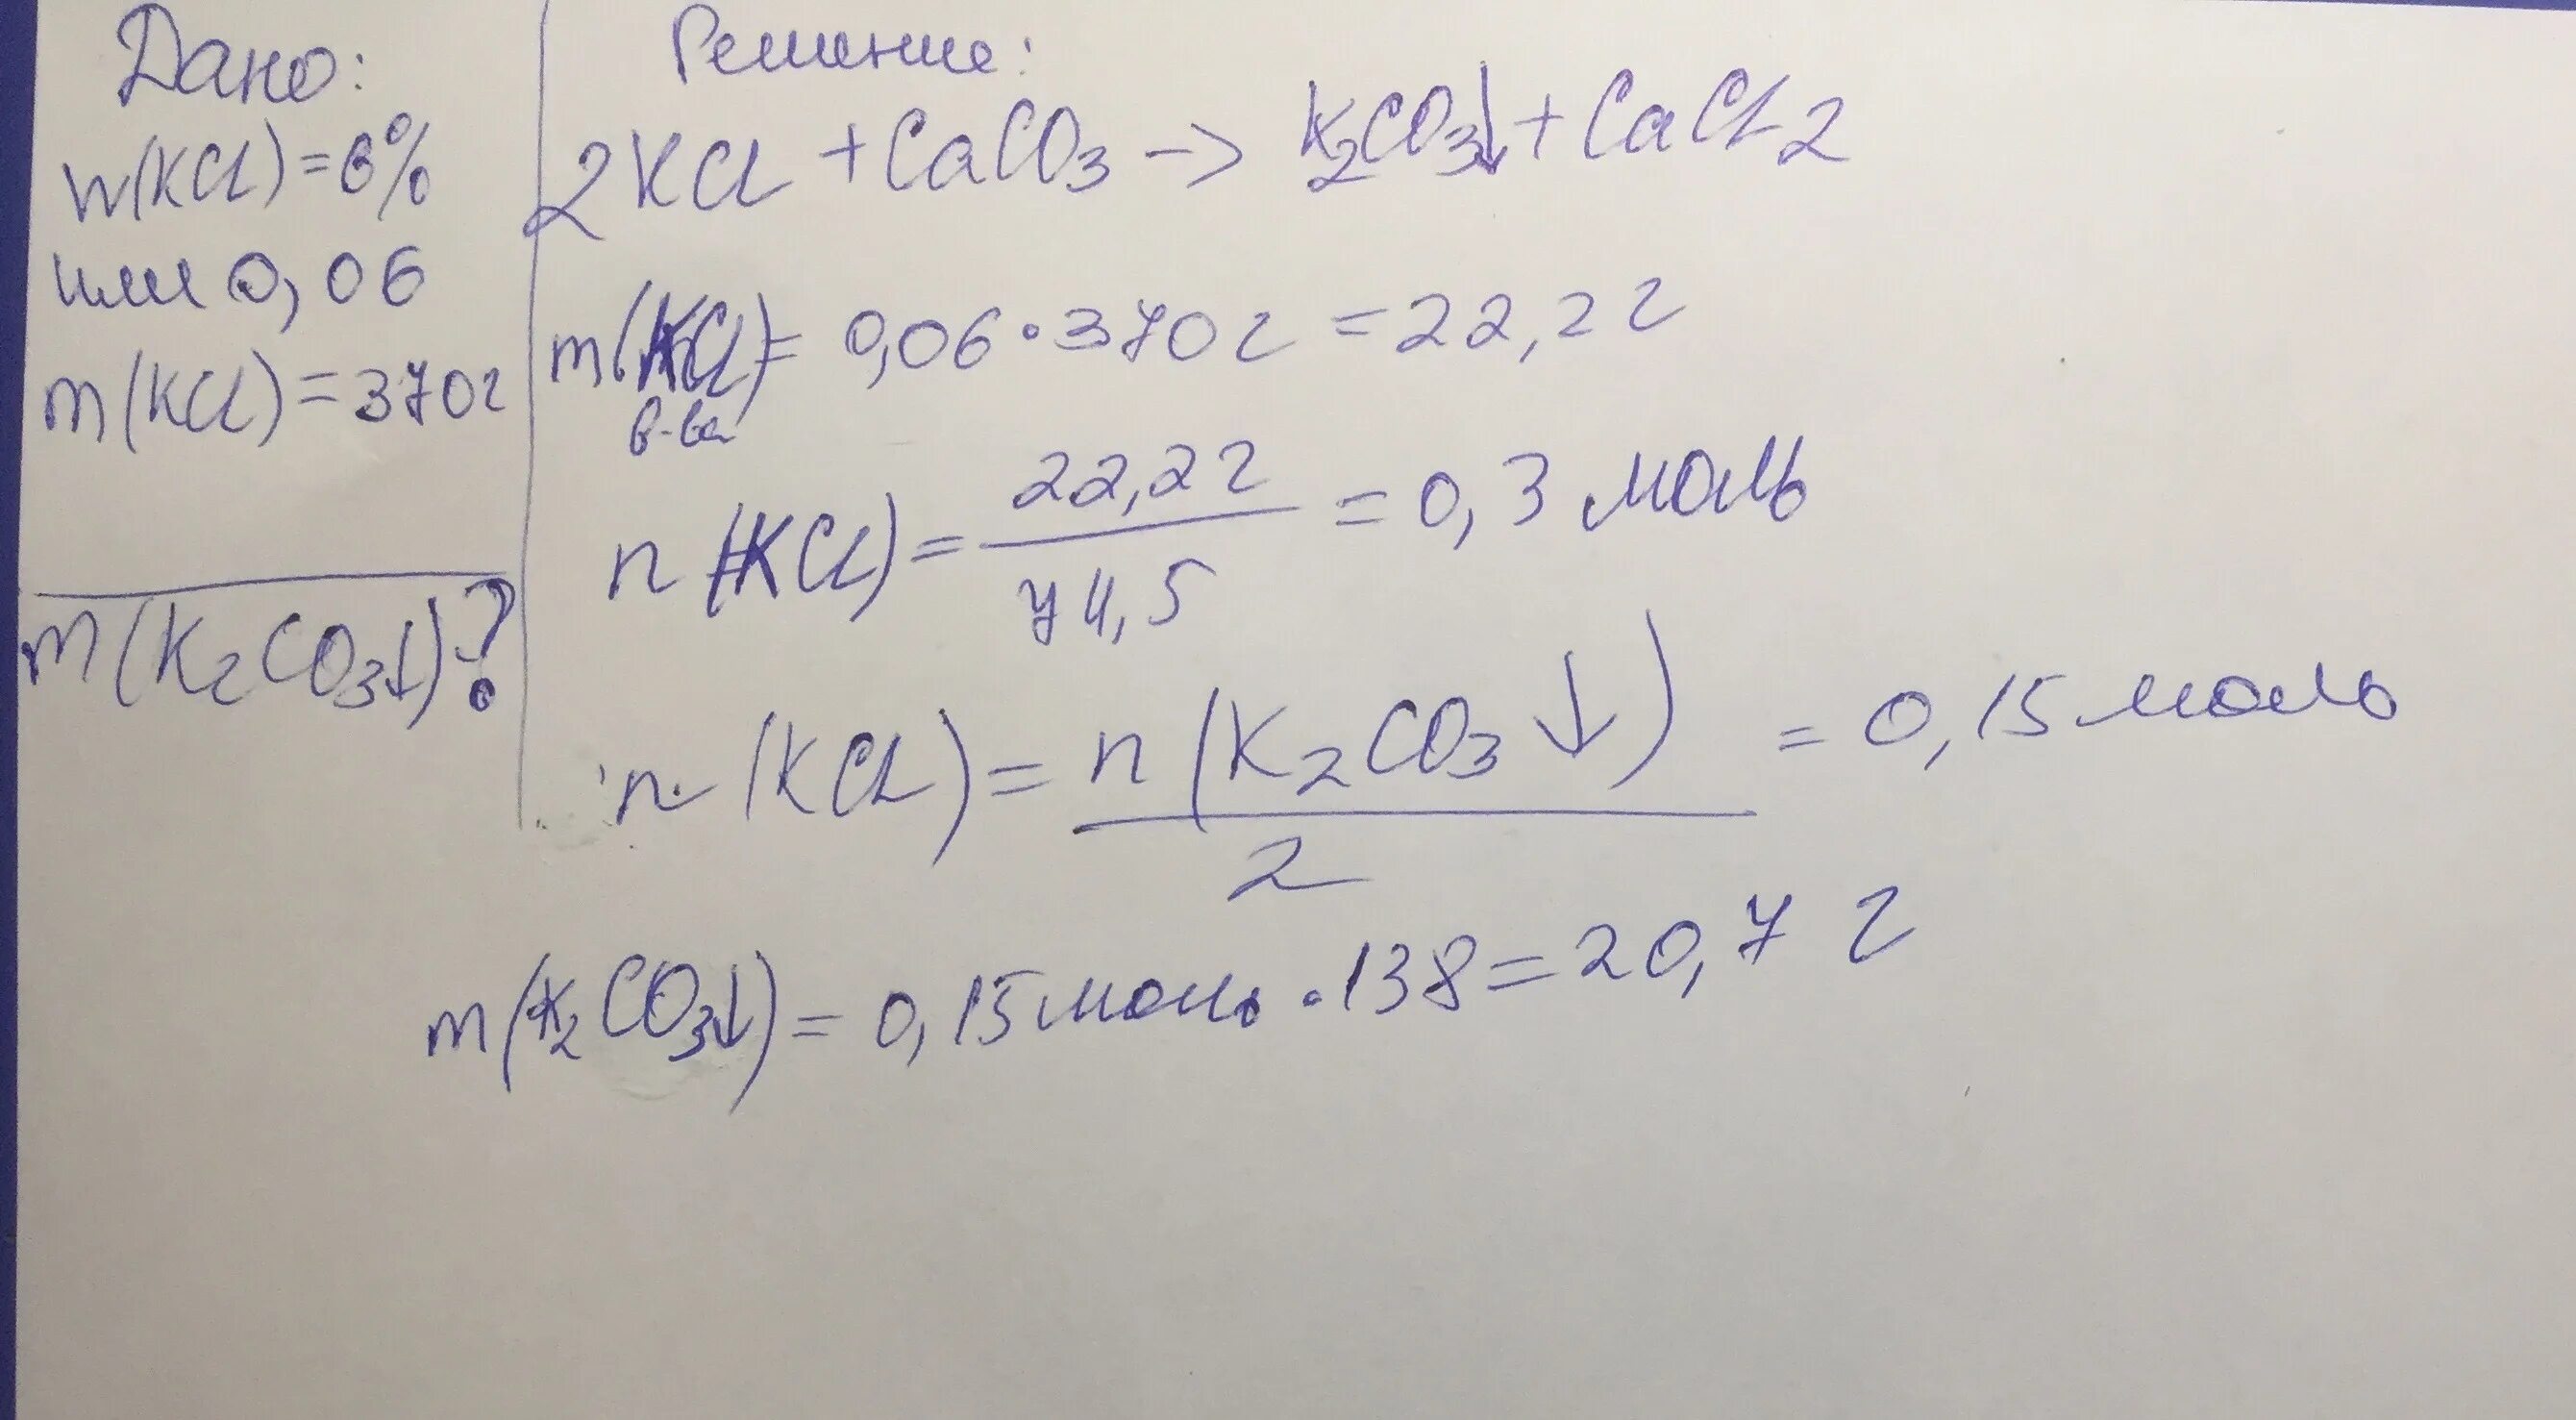 Дано:
w(KCl)=6%
или 0,06
m(KCl)=370г
m(K2CO3↓)-?
Решение:
2KCl + CaCO3 -> K2CO3↓ + CaCl2
m(KCl)= 0,06 • 370г = 22,2г
в-ва
n(KCl)= 22,2г / 74,5 = 0,3 моль
n(KCl)= n(K2CO3↓) / 2 = 0,15 моль
m(K2CO3↓)= 0,15 моль • 138=20,7 г